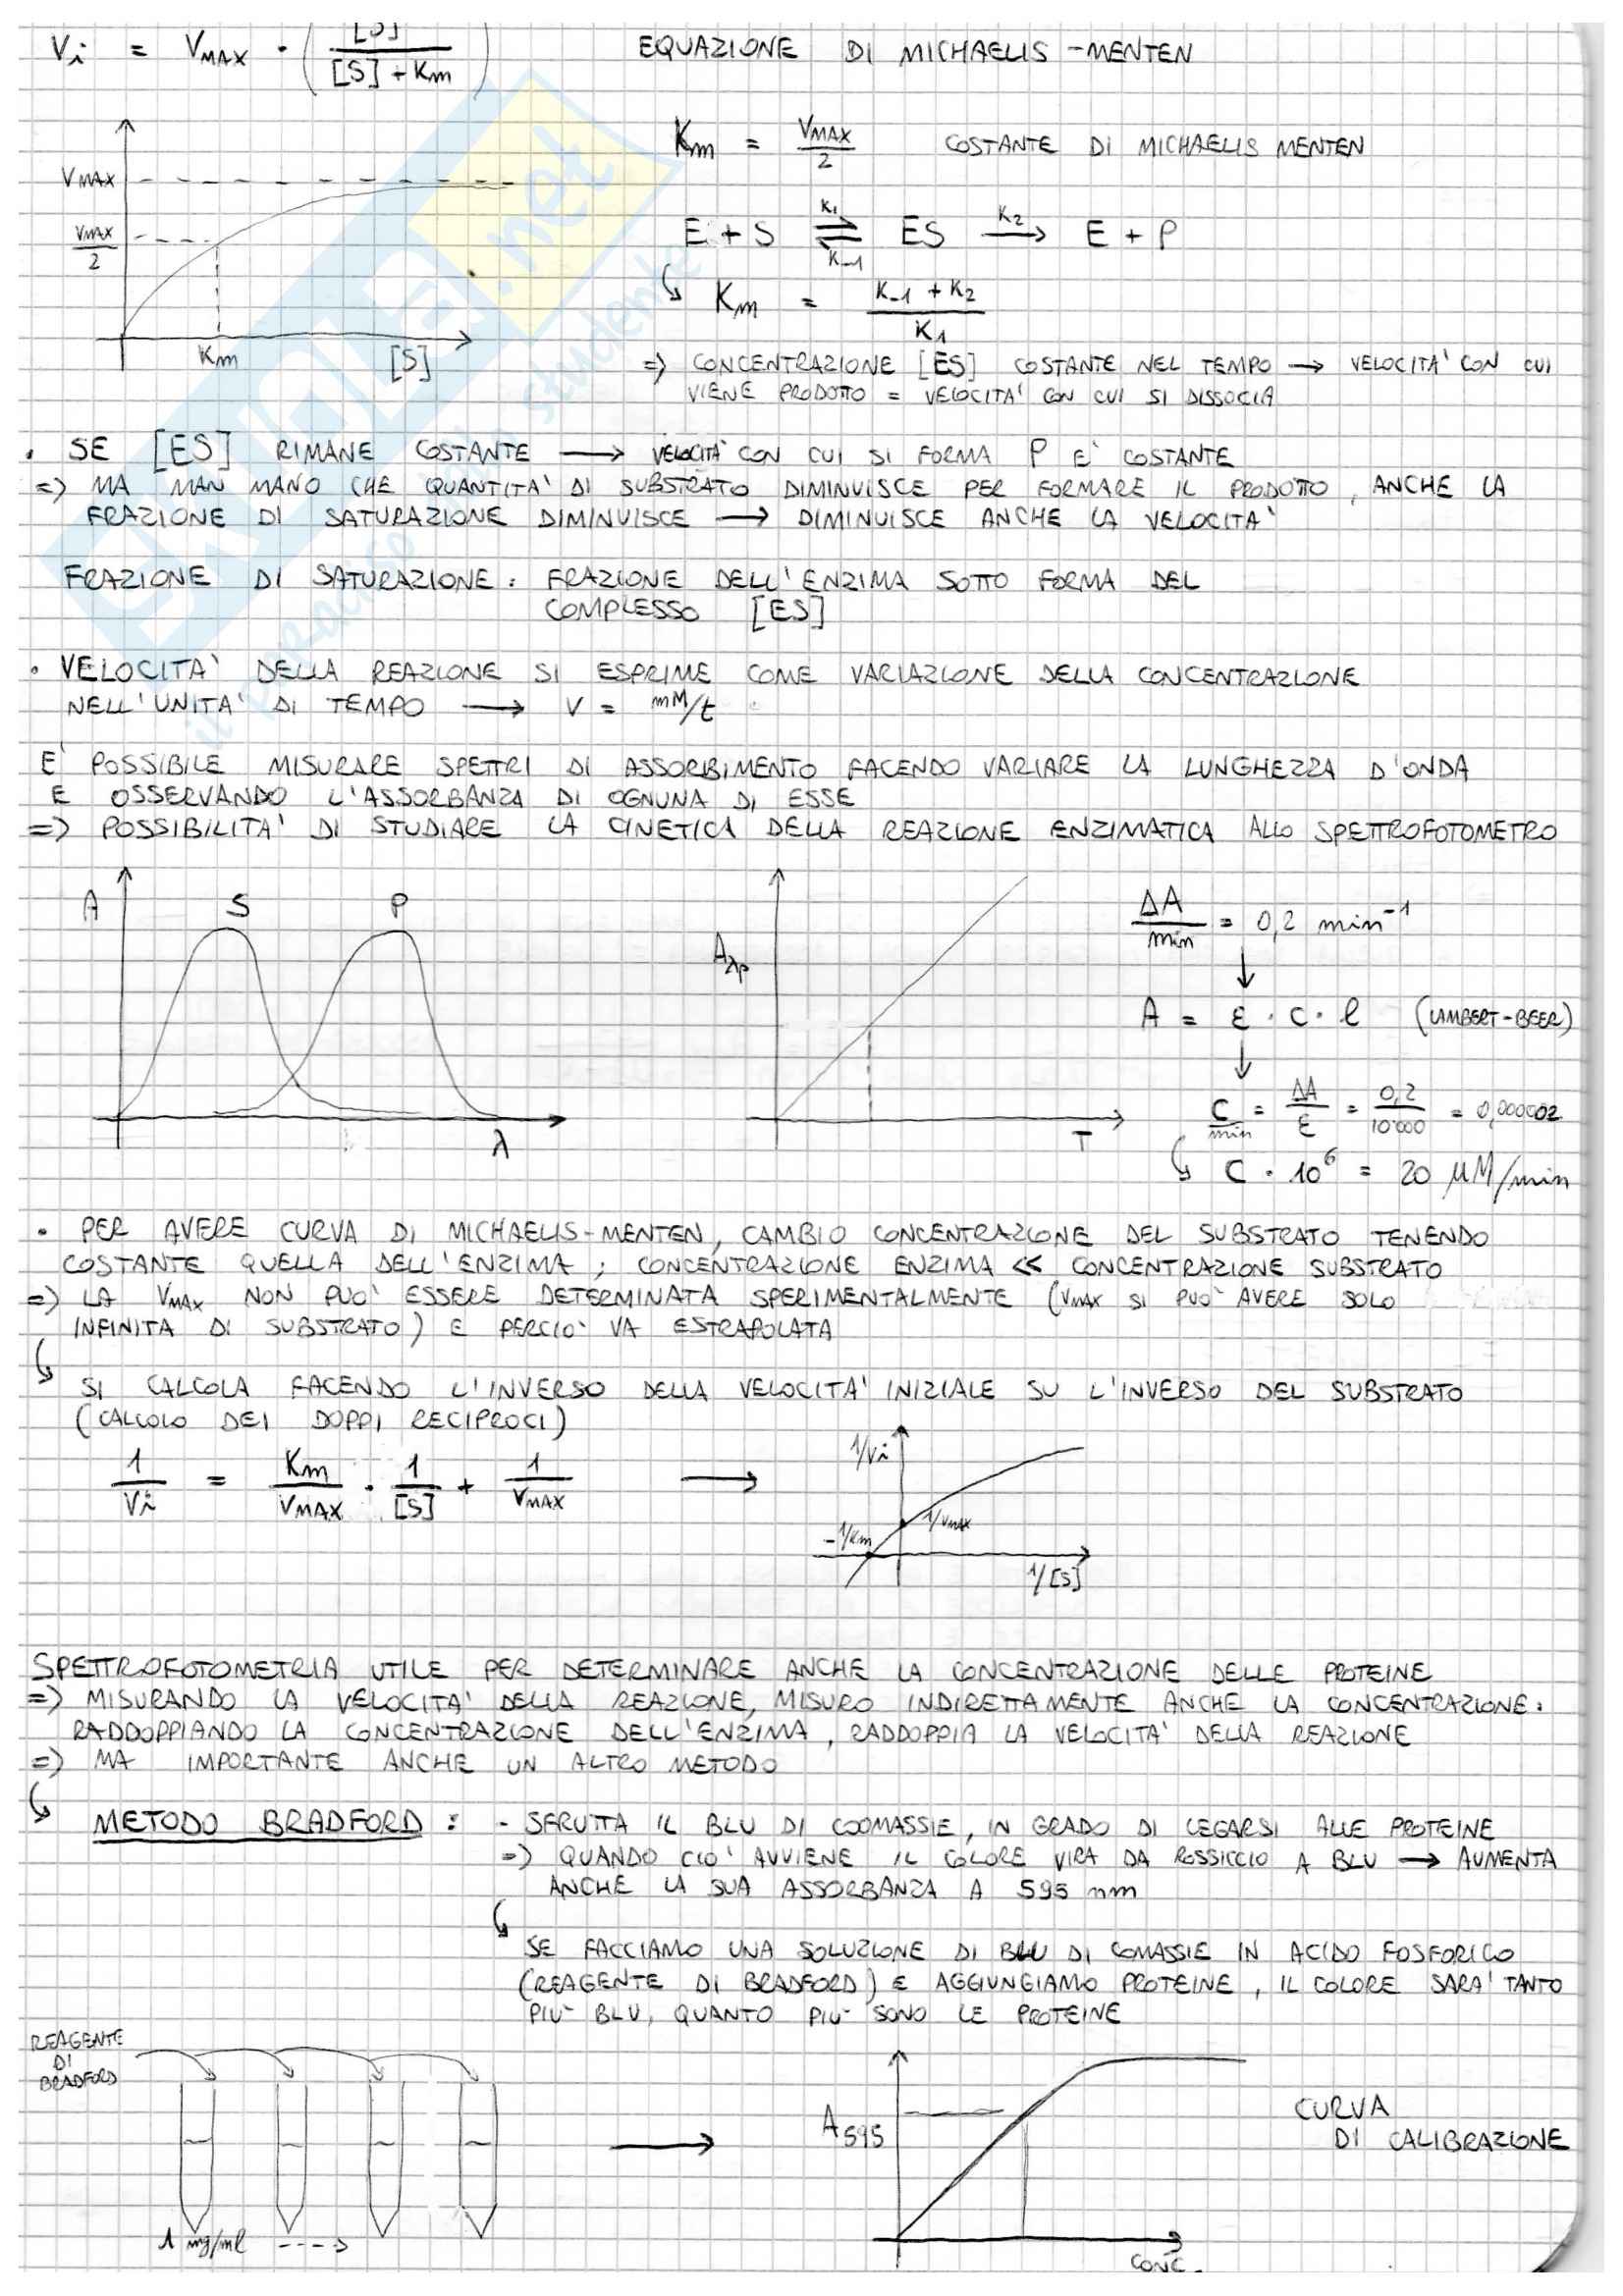 Vi = VMAX · ([S] / [S] + Km) EQUAZIONE DI MICHAELIS-MENTEN
Km = VMAX/2 COSTANTE DI MICHAELIS MENTEN
VMAX
VMAX/2
Km [S]
E + S ⇌ ES → E + P
K1 K-1 K2
↳ Km = K-1 + K2 / K1
=> CONCENTRAZIONE [ES] COSTANTE NEL TEMPO → VELOCITA' CON CUI
VIENE PRODOTTO = VELOCITA' CON CUI SI DISSOCIA
• SE [ES] RIMANE COSTANTE → VELOCITA' CON CUI SI FORMA P E' COSTANTE
=> MA MAN MANO CHE QUANTITA' DI SUBSTRATO DIMINUISCE PER FORMARE IL PRODOTTO, ANCHE LA
FRAZIONE DI SATURAZIONE DIMINUISCE → DIMINUISCE ANCHE LA VELOCITA'
FRAZIONE DI SATURAZIONE: FRAZIONE DELL'ENZIMA SOTTO FORMA DEL
COMPLESSO [ES]
• VELOCITA' DELLA REAZIONE SI ESPRIME COME VARIAZIONE DELLA CONCENTRAZIONE
NELL'UNITA' DI TEMPO → V = mM/t
E' POSSIBILE MISURARE SPETTRI DI ASSORBIMENTO FACENDO VARIARE LA LUNGHEZZA D'ONDA
E OSSERVANDO L'ASSORBANZA DI OGNUNA DI ESSE
=> POSSIBILITA' DI STUDIARE LA CINETICA DELLA REAZIONE ENZIMATICA ALLO SPETTROFOTOMETRO
A S P λ
Aλp T
ΔA/min = 0,2 min⁻¹
↓
A = ε · C · l (LAMBERT-BEER)
↓
C/min = ΔA/ε = 0,2/10'000 = 0,000002
↳ C · 10⁶ = 20 µM/min
• PER AVERE CURVA DI MICHAELIS-MENTEN, CAMBIO CONCENTRAZIONE DEL SUBSTRATO TENENDO
COSTANTE QUELLA DELL'ENZIMA; CONCENTRAZIONE ENZIMA << CONCENTRAZIONE SUBSTRATO
=> LA VMAX NON PUO' ESSERE DETERMINATA SPERIMENTALMENTE (VMAX SI PUO' AVERE SOLO
INFINITA DI SUBSTRATO) E PERCIO' VA ESTRAPOLATA
↳ SI CALCOLA FACENDO L'INVERSO DELLA VELOCITA' INIZIALE SU L'INVERSO DEL SUBSTRATO
(CALCOLO DEI DOPPI RECIPROCI)
1/Vi = Km/VMAX · 1/[S] + 1/VMAX →
1/Vi
-1/Km 1/VMAX
1/[S]
SPETTROFOTOMETRIA UTILE PER DETERMINARE ANCHE LA CONCENTRAZIONE DELLE PROTEINE
=> MISURANDO LA VELOCITA' DELLA REAZIONE, MISURO INDIRETTAMENTE ANCHE LA CONCENTRAZIONE:
RADDOPPIANDO LA CONCENTRAZIONE DELL'ENZIMA, RADDOPPIA LA VELOCITA' DELLA REAZIONE
=> MA IMPORTANTE ANCHE UN ALTRO METODO
↳ METODO BRADFORD: - SFRUTTA IL BLU DI COOMASSIE, IN GRADO DI LEGARSI ALLE PROTEINE
=> QUANDO CIO' AVVIENE IL COLORE VIRA DA ROSSICCIO A BLU → AUMENTA
ANCHE LA SUA ASSORBANZA A 595 nm
↳ SE FACCIAMO UNA SOLUZIONE DI BLU DI COMASSIE IN ACIDO FOSFORICO
(REAGENTE DI BRADFORD) E AGGIUNGIAMO PROTEINE, IL COLORE SARA' TANTO
PIU' BLU, QUANTO PIU' SONO LE PROTEINE
REAGENTE
DI
BRADFORD
1 mg/ml ---->
→
A595
CONC.
CURVA
DI CALIBRAZIONE